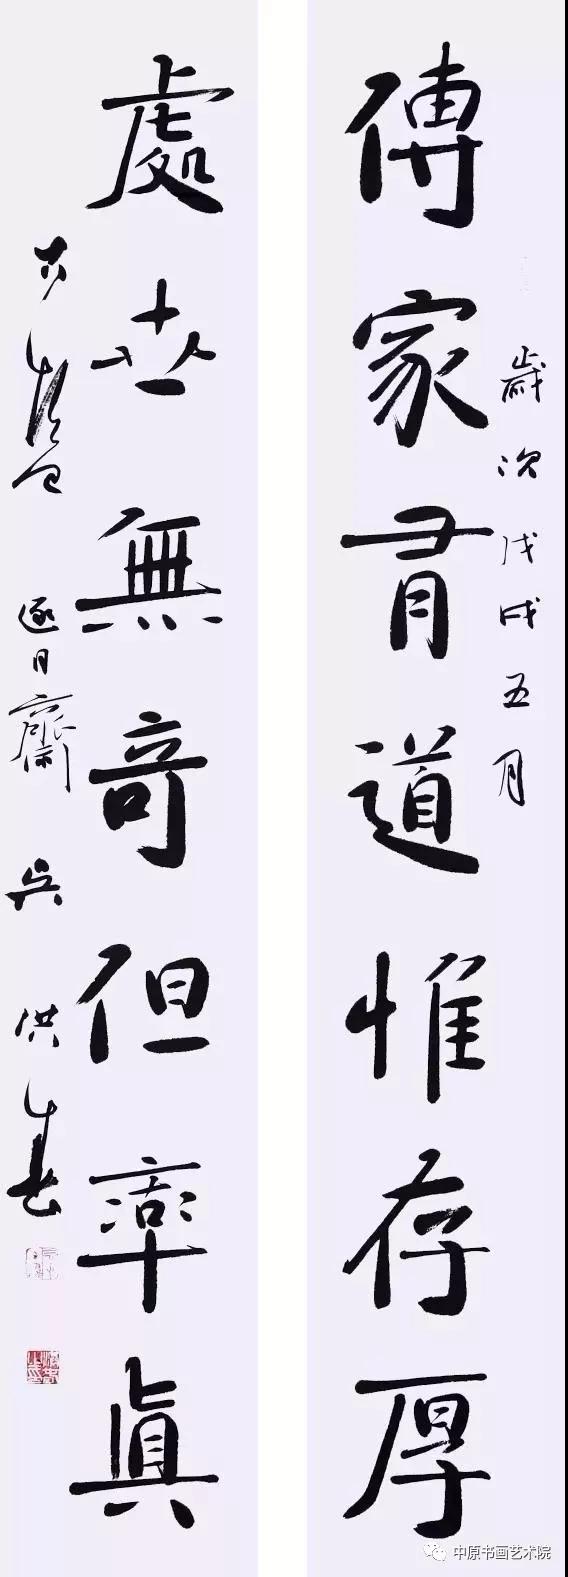 歲次戊戌五月
傳家有道惟存厚
處世無奇但率眞
逐日齋 吳洪春
中原书画艺术院